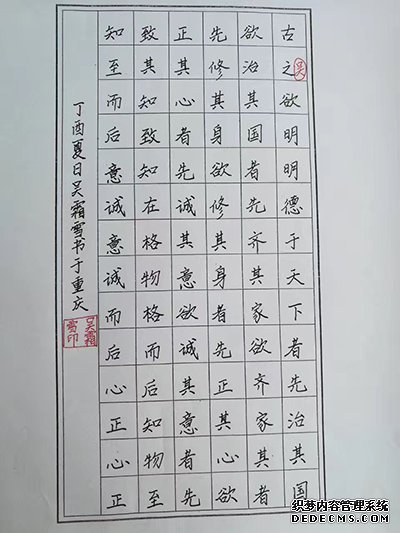 古之欲明明德于天下者先治其国
欲治其国者先齐其家欲齐家其者
先修其身欲修其身者先正其心欲
正其心者先诚其意欲诚其意者先
致其知致知在格物格而后知物至
知至而后意诚意诚而后心正心正
丁酉夏日吴霜雪书于重庆
吴霜雪印
吴
织梦内容管理系统
DEDECMS.COM